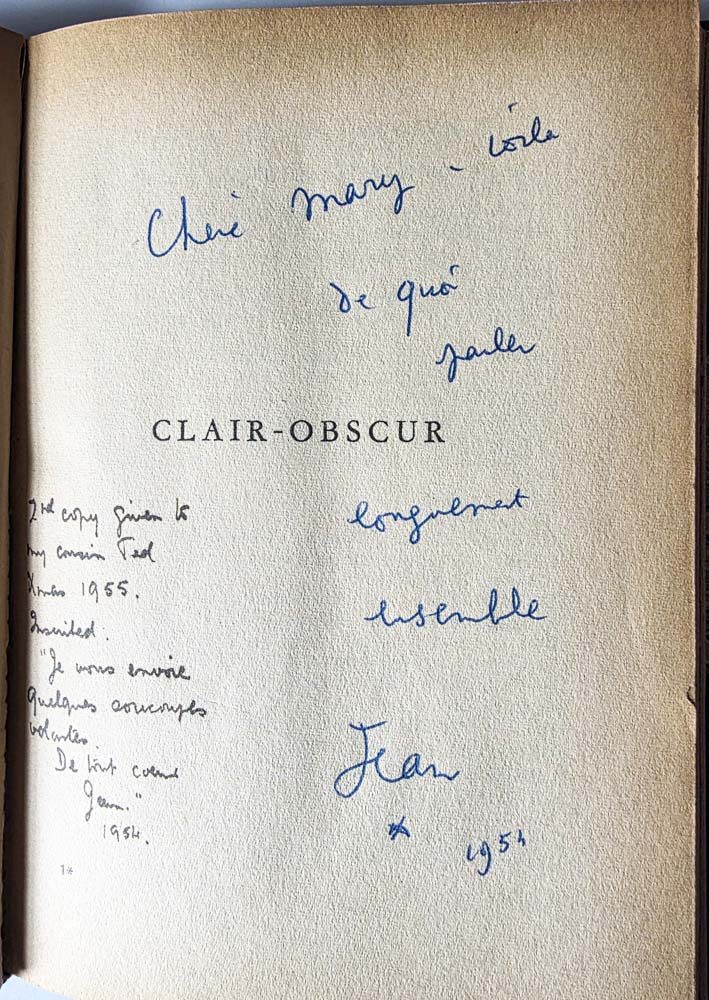 Chère Mary - voila
de quoi
parler
CLAIR-OBSCUR
longuement
ensemble
Jean
* 1954
2nd copy given to
my cousin Ted
Xmas 1955.
Inscribed:
"Je vous envoie
quelques soucoupes
volantes.
De tout coeur
Jean."
1954.
1*